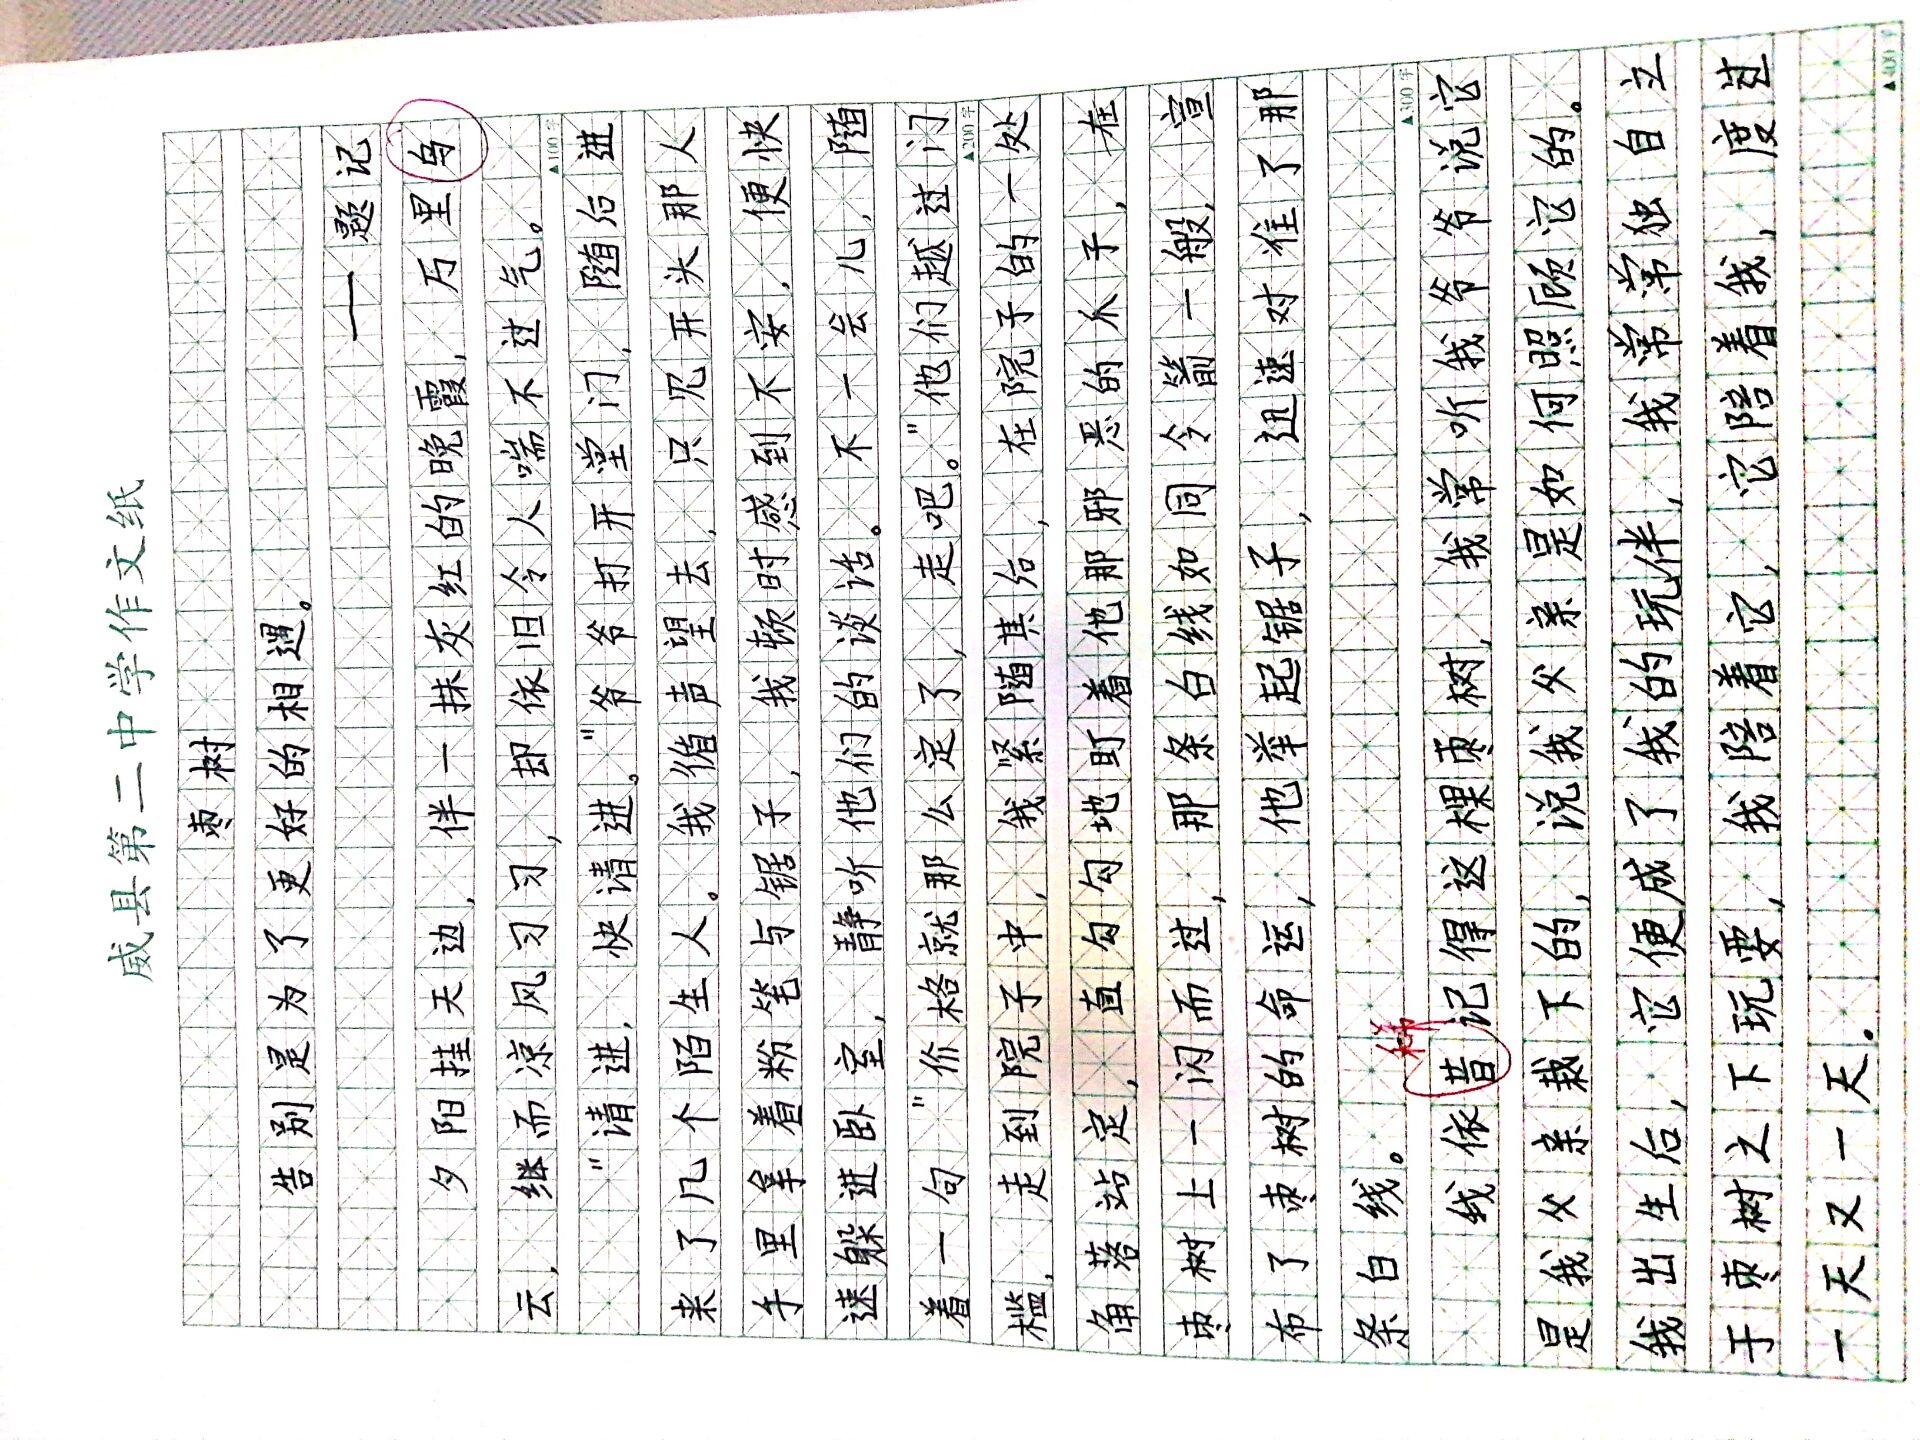 威县第二中学作文纸
枣树
告别是为了更好的相遇。
——题记
夕阳挂天边，伴一抹灰红的晚霞，万里乌
云，继而凉风习习，却依旧令人喘不过气。
▲100字
"请进，快请进。"爷爷打开堂门，随后进
来了几个陌生人。我循声望去，只见开头那人
手里拿着粉笔与锯子，我顿时感到不安，便快
速躲进卧室，静听他们的谈话。不一会儿，随
着一句"价格就那么定了，走吧。"他们越过门
▲200字
槛，走到院子中，我紧随其后，在院子的一处
角落站定，直勾勾地盯着他那邪恶的爪子，在
枣树上一闪而过，那条白线如同令箭一般，宣
布了枣树的命运，他举起锯子，迅速对准了那
条白线。
▲300字
我依昔记得这棵枣树，我常听我爷爷说它
稀
是我父亲栽下的，说我父亲是如何照顾它的。
我出生后，它便成了我的玩伴，我常常独自立
于枣树之下玩耍，我陪着它，它陪着我，度过
一天又一天。
▲400字